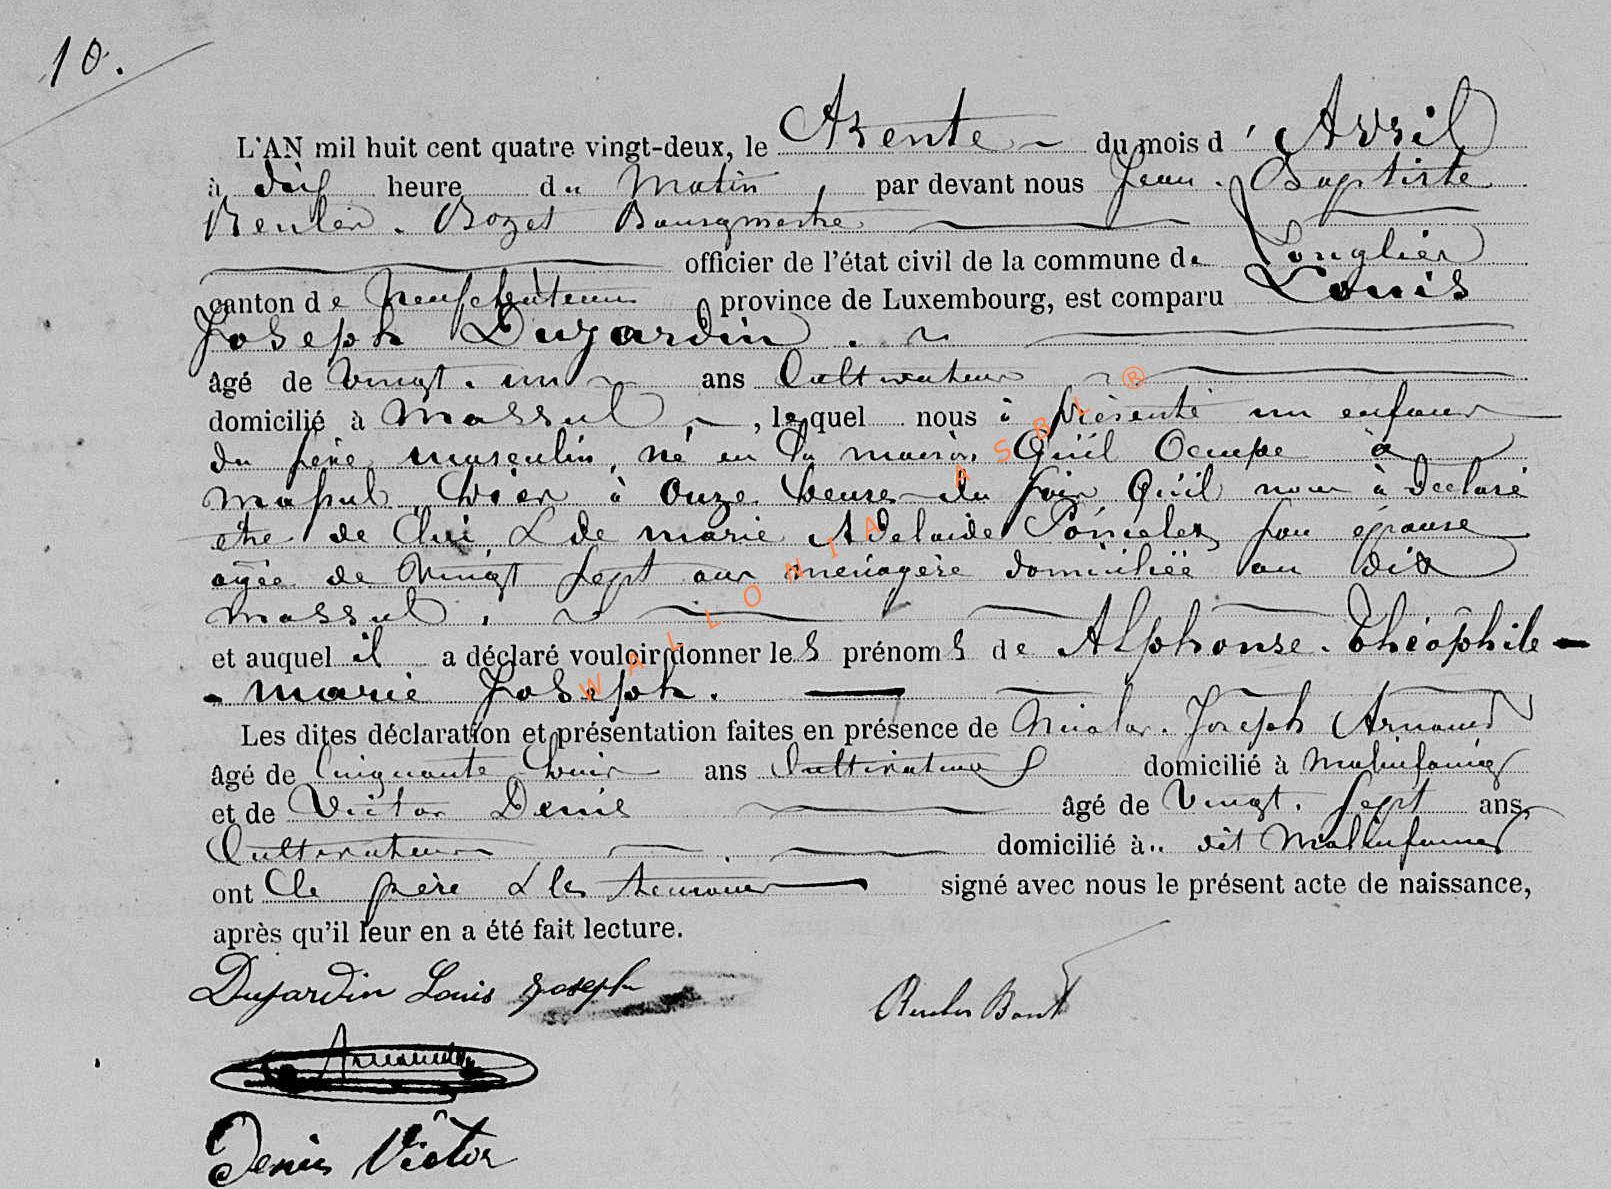 10.
L'AN mil huit cent quatre vingt-deux, le Trente du mois d' Avril
à dix heure du Matin, par devant nous Jean. Baptiste
Reuler. Bozet Bourgmestre
officier de l'état civil de la commune de Longlier
canton de Neufchâteau province de Luxembourg, est comparu Louis
Joseph Dujardin.
âgé de Vingt. un ans Cultivateur
domicilié à Massul, lequel nous à présenté un enfant
du sexe masculin, né en la maison Qu'il Occupe à
Massul hier à Onze heures du soir Qu'il nous à Déclaré
etre de Lui & de marie Adelaide Poncelet son épouse
agée de Vingt Sept ans ménagère domiciliée au dit
Massul.
et auquel il a déclaré vouloir donner les prénoms de Alphonse. Théophile -
- marie Joseph.
Les dites déclaration et présentation faites en présence de Nicolas. Joseph Arnould
âgé de Cinquante huit ans Cultivateur domicilié à Molinfaing
et de Victor Denis âgé de Vingt. Sept ans
Cultivateur domicilié à dit Molinfaing
ont Le père & les témoins signé avec nous le présent acte de naissance,
après qu'il leur en a été fait lecture.
Dujardin Louis Joseph
Arnould
Denis Victor
WALLONIA ASBL ®